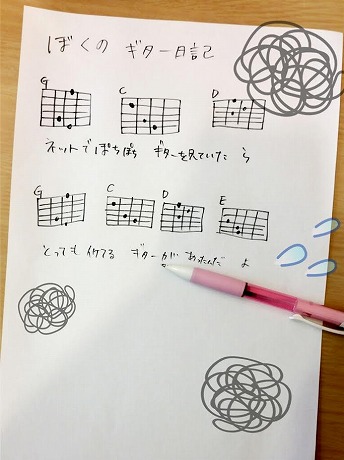 ぼくの ギター日記
G C D
ネットでぽちぽち ギターを見ていたら
G C D E
とっても 似てる ギターが あったんだ よ